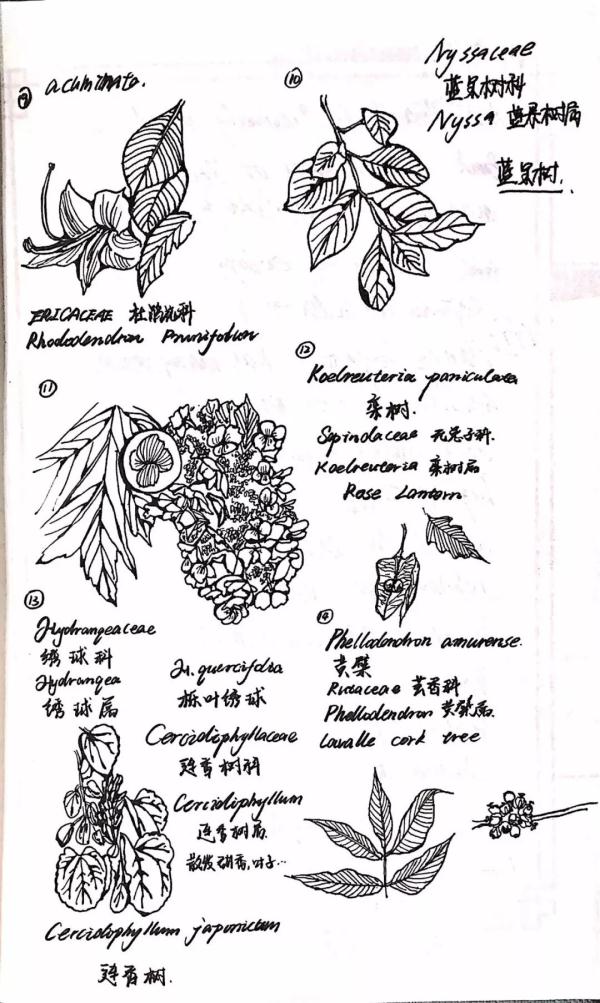 ⑨ acuminata.
ERICACEAE 杜鹃花科
Rhododendron Prunifolium
⑩
Nyssaceae
蓝果树科
Nyssa 蓝果树属
蓝果树.
⑪
⑫
Koelreuteria paniculata
栾树.
Sapindaceae 无患子科.
Koelreuteria 栾树属
Rose Lantern
⑬
Hydrangeaceae
绣球科
Hydrangea
绣球属
H. quercifolia
栎叶绣球
Cercidiphyllaceae
连香树科
Cercidiphyllum
连香树属
散发甜香,叶子…
Cercidiphyllum japonicum
连香树.
⑭
Phellodendron amurense.
黄檗
Rutaceae 芸香科
Phellodendron 黄檗属.
Lavalle cork tree